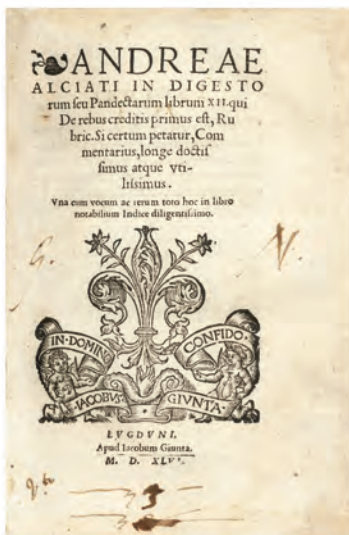 ANDREAE
ALCIATI IN DIGESTO
rum seu Pandectarum librum XII. qui
De rebus creditis primus est, Ru
bric. Si certum petatur, Com
mentarius, longe doctis
simus atque vti-
lissimus.
Vna cum vocum ac rerum toto hoc in libro
notabilium Indice diligentissimo.
G. V.
IN DOMINO CONFIDO.
IACOBVS GIVNTA.
LVGDVNI,
Apud Iacobum Giunta.
M. D.